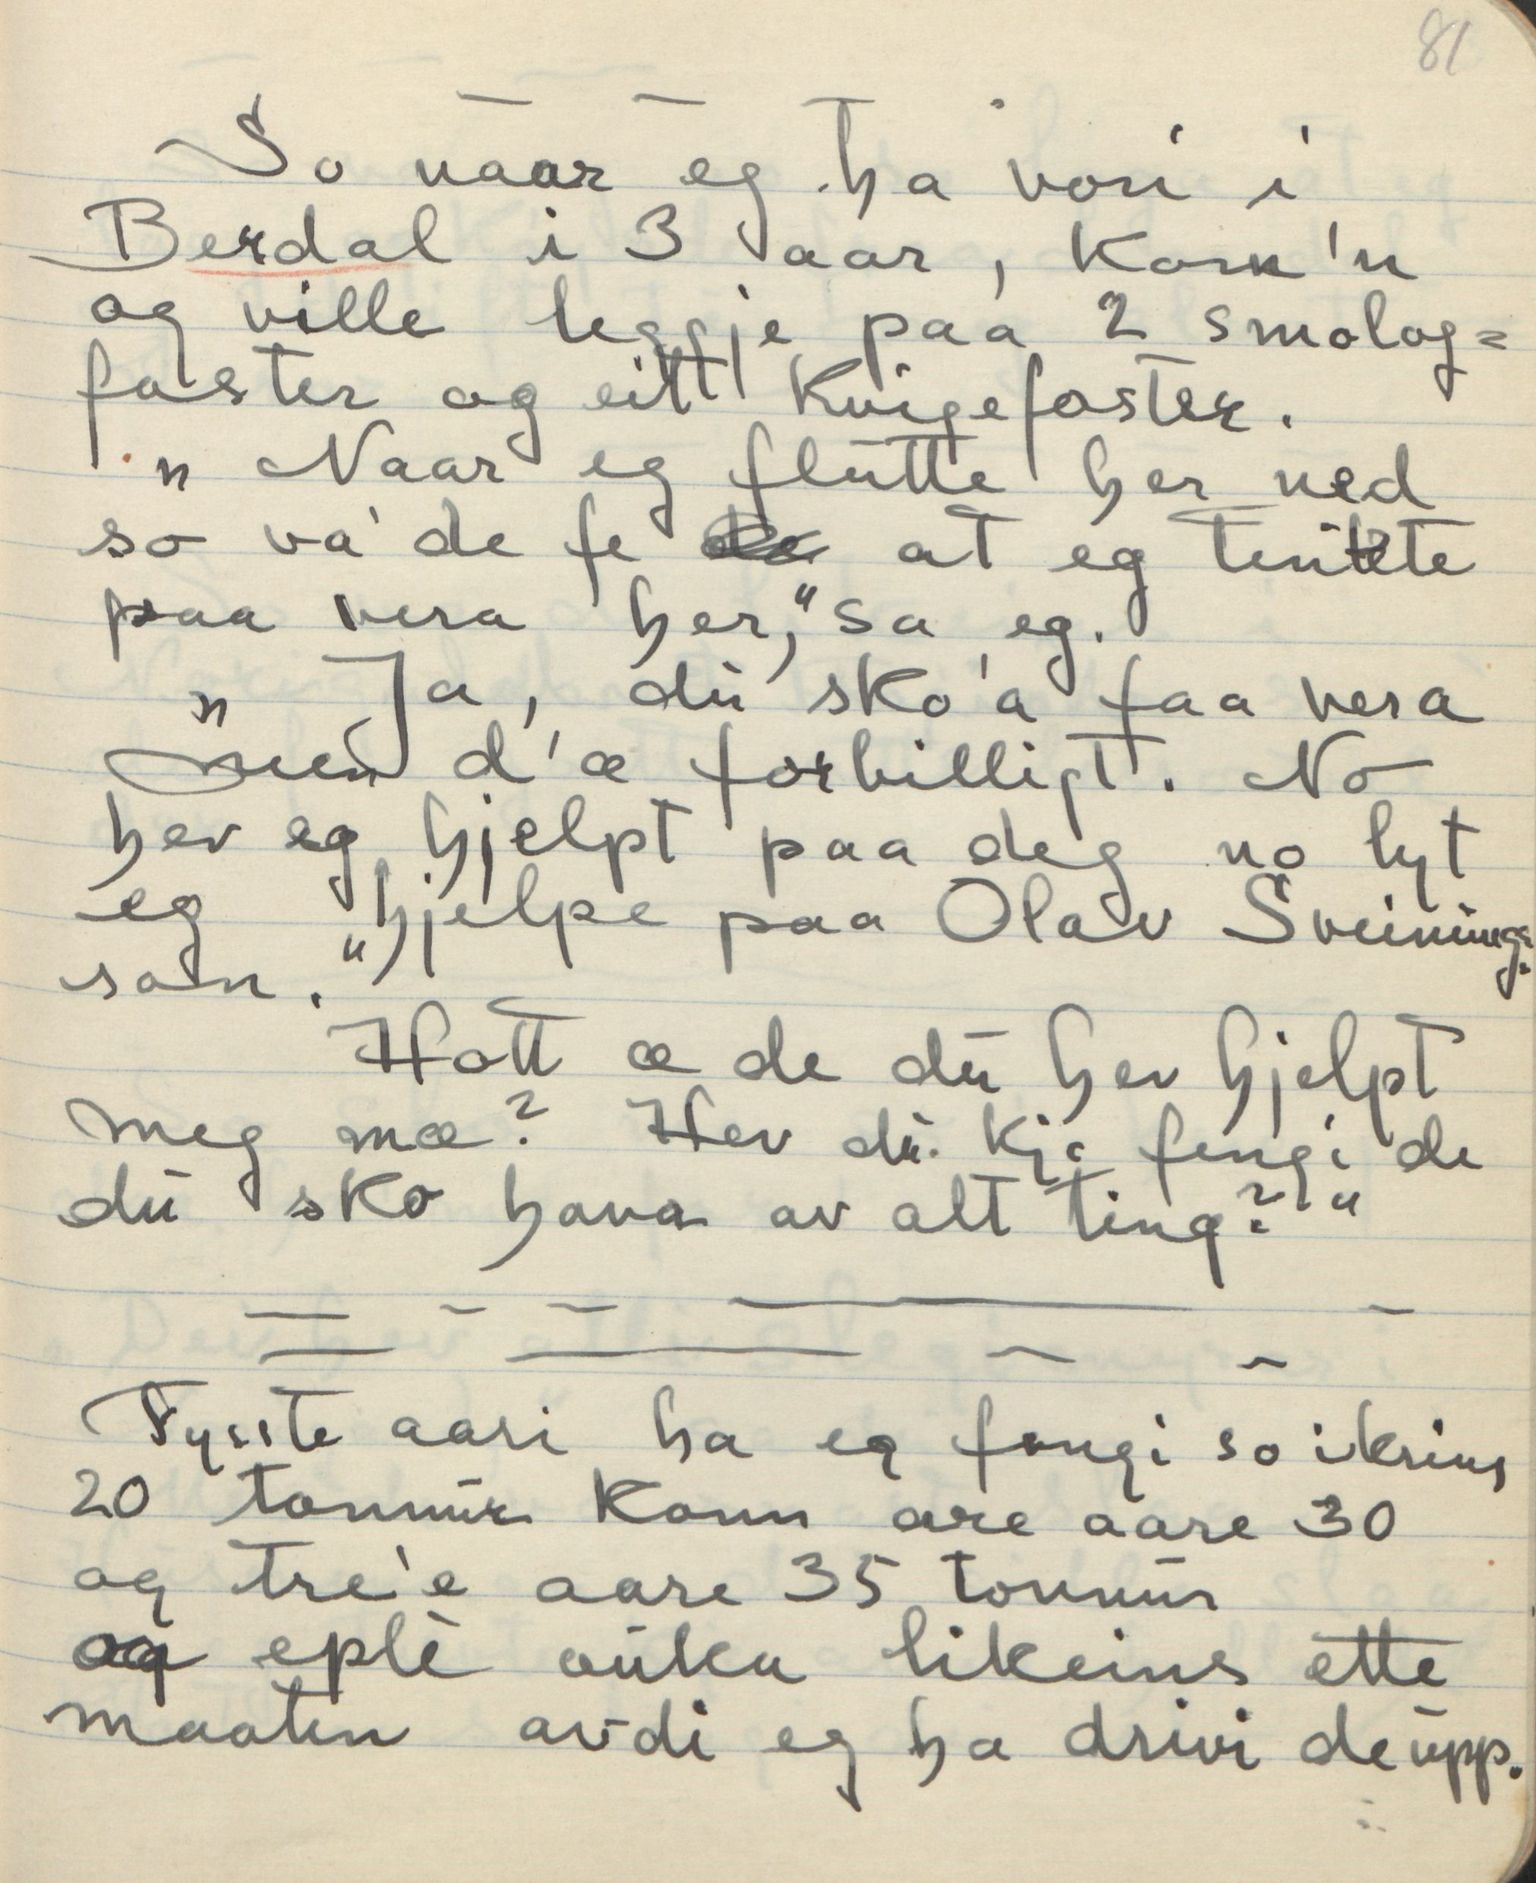 81
So naar eg ha vori i
Berdal i 3 aar, kom'n
og ville leggje paa 2 smolog=
foster og eitt Kvigefoster.
"Naar eg flutte her ned
so va' de fe at eg tenkte
paa vera her," sa eg.
"Ja, du sko'a faa vera
men d'æ forbilligt. No
hev eg hjelpt paa deg no lyt
eg hjelpe paa Olav Sveinungs=
son."
Hott æ de du hev hjelpt
meg mæ? Hev du kje fengi de
du sko hava av alt ting?"
Fysste aari ha eg fengi so ikring
20 tonnur konn are aare 30
og tre'e aare 35 tonnur
og eple auka likeins ette
maaten avdi eg ha drivi de upp.